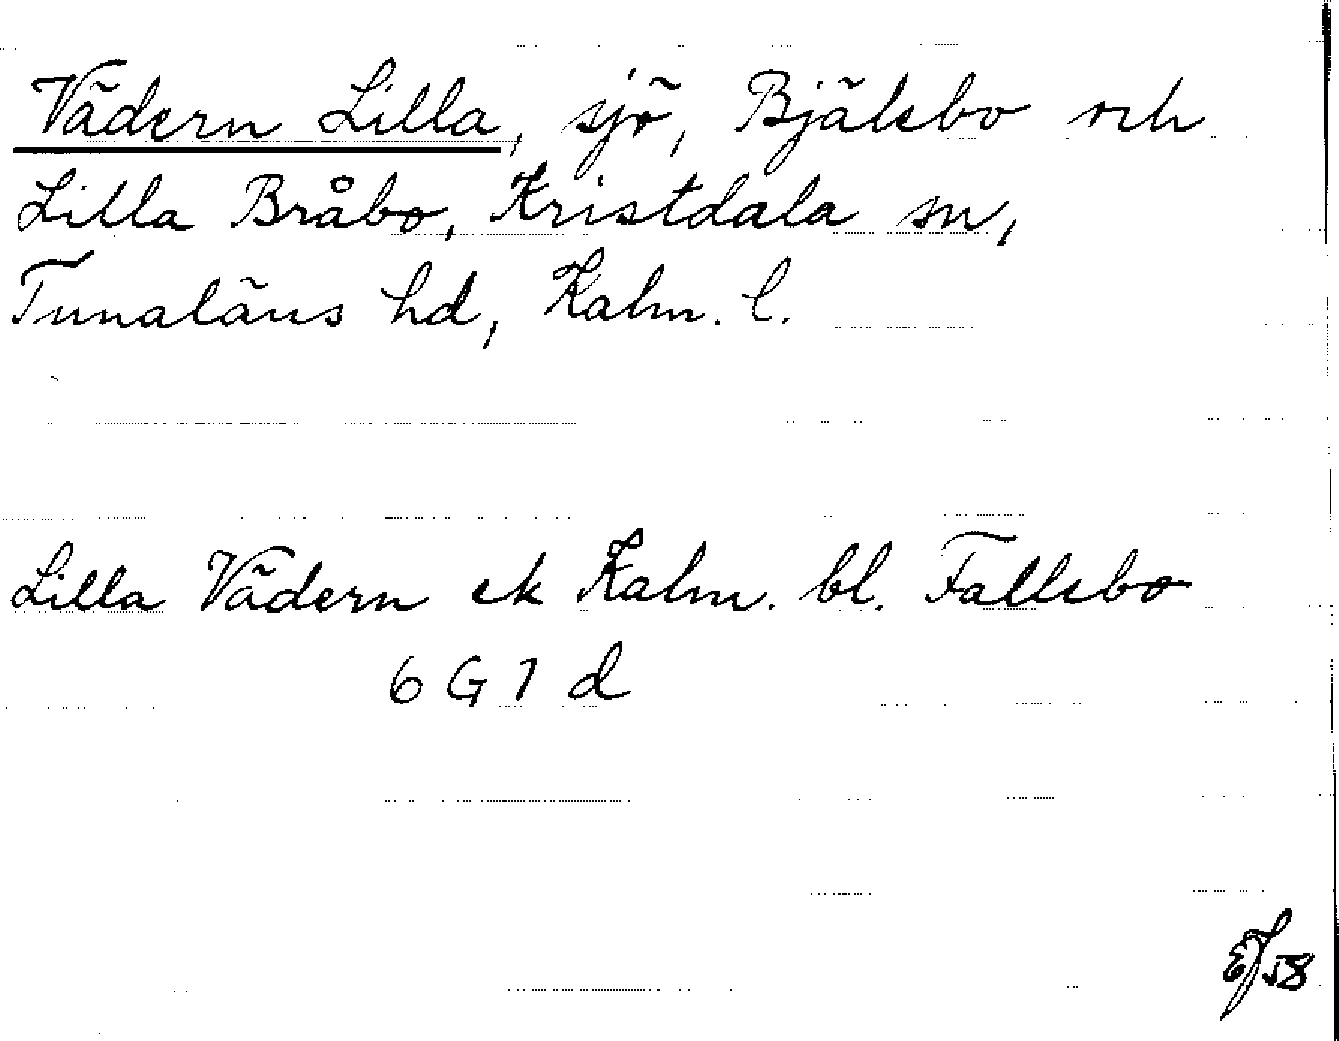 Vädern Lilla, sjö, Bjälebo och
Lilla Bråbo, Kristdala sn,
Tunaläns hd, Kalm. l.
Lilla Vädern ek Kalm. bl. Fallebo
6 G 1 d